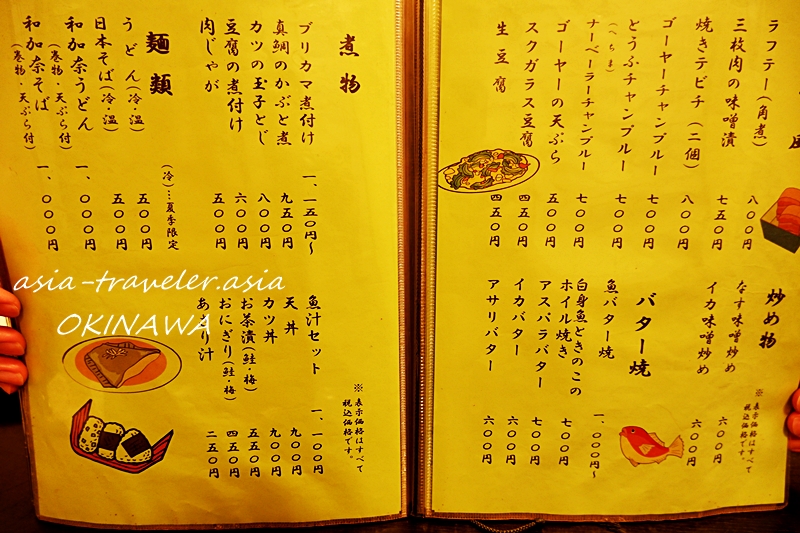 ラフテー(角煮) 八〇〇円
三枚肉の味噌漬 七五〇円
焼きテビチ(二個) 八〇〇円
ゴーヤーチャンプルー 七〇〇円
とうふチャンプルー 七〇〇円
(へちま)
ナーベーラーチャンプルー 七〇〇円
ゴーヤーの天ぷら 五〇〇円
スクガラス豆腐 四五〇円
生豆腐 四五〇円
炒め物
なす味噌炒め 六〇〇円
イカ味噌炒め 六〇〇円
バター焼
魚バター焼 一、〇〇〇円〜
白身魚ときのこの
ホイル焼き 七〇〇円
アスパラバター 七〇〇円
イカバター 六〇〇円
アサリバター 六〇〇円
※表示価格はすべて
税込価格です。
煮物
ブリカマ煮付け 一、一五〇円〜
真鯛のかぶと煮 九五〇円
カツの玉子とじ 八〇〇円
豆腐の煮付け 六〇〇円
肉じゃが 五〇〇円
麺類
(冷)…夏季限定
うどん(冷・温) 五〇〇円
日本そば(冷・温) 五〇〇円
和加奈うどん 一、〇〇〇円
(巻物・天ぷら付)
和加奈そば 一、〇〇〇円
(巻物・天ぷら付)
魚汁セット 一、一〇〇円
天丼 九〇〇円
カツ丼 九〇〇円
お茶漬(鮭・梅) 五五〇円
おにぎり(鮭・梅) 四五〇円
あさり汁 二五〇円
※表示価格はすべて
税込価格です。
asia-traveler.asia
OKINAWA